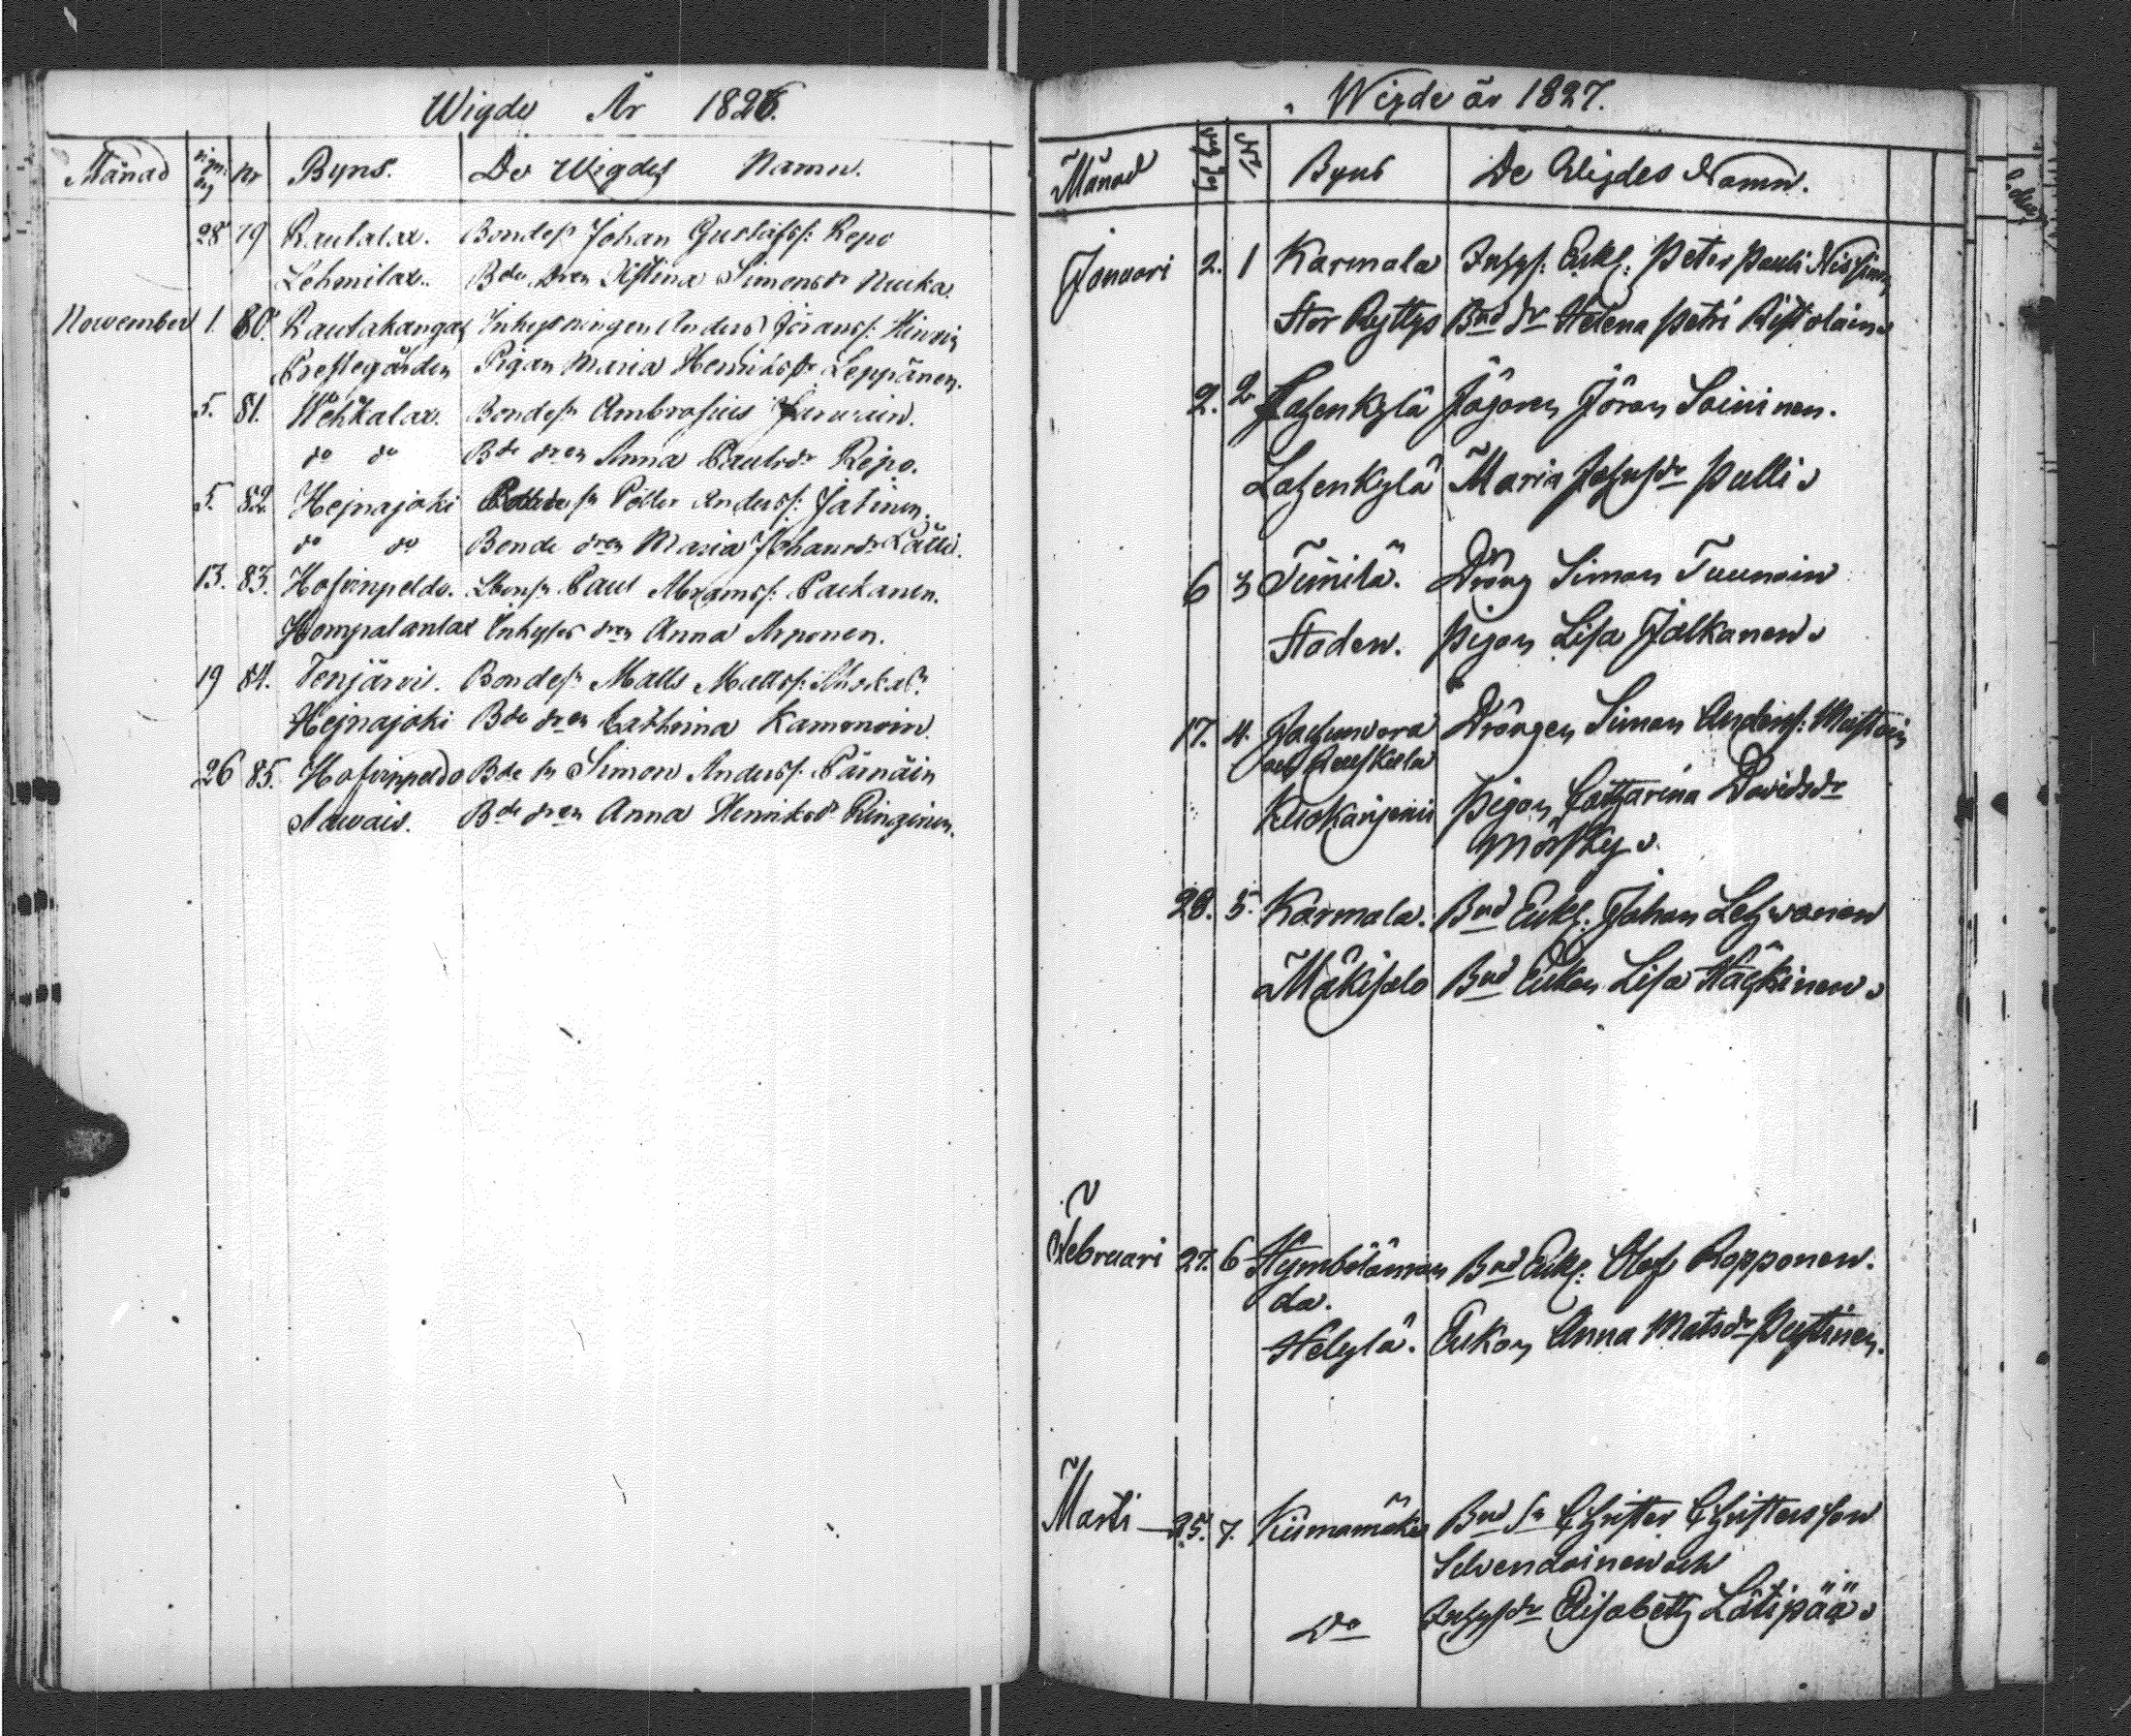 Wigde År 1826.
Månad vign: dag Nr Byns. De Wigdes Namn.
28 79 Rautalax. Bondes Johan Gustafss: Repo
Lehmilax. Bde dren Kristina Simonsdr Nuuka.
November 1. 80. Rautakangas Inhysningen Anders Jöranss: Hinzin
Prestegården Pigan Maria Henriksdr Leppänen.
5. 81. Wehkalax. Bondesn Ambrosius
do do Bde dren Anna Paulsdr Repo.
5. 82. Hejnajoki sn Petter Anderss: Jatinen.
do do Bonde dren Maria Johansdr Lätti.
13. 83. Hofvinpeldo. Paul Abramss: Packanen.
Hompalanlax Inhyses dren Anna Arponen.
19 84. Tenjärvi. Bondesn Matts Mattss:
Hejnajoki Bde dren Cathrina Kamonoin.
26 85. Hofvinpeldo Bde sn Simon Anderss: Pärnäin
Bde dren Anna Henriksdr Ringinen.
Wigde år 1827.
Månad vig dag Nr Byns De Wigdes Namn.
Januari 2. 1 Karmala Inhys: Enkl: Peter Pauli Nissinen
Stor Ryttys Bnd dr Helena Petri Ristolain
2. 2 Lahenkylä Jöran Soininen.
Lahenkylä Maria Johsdr Pulli
6 3 Tunila. Dräng Simon Tuunain
Staden. Pigan Lisa Jalkanen
17. 4. Jachunvara Drängen Simon Anderss: Mustoin
Pigan Catharina Davidsdr
Mörsky
28. 5. Karmala. Bnd Enkl: Johan Lehvonen
Mäkisalo Bnd Enkan Lisa Häckinen
Februari 27. 6 Hymbölänran Bnd Enkl: Olof Ropponen.
da.
Helylä. Enkan Anna Matsdr Pustinen.
Marti 25. 7. Kiismamäkis Bnd sn Christer Christersson
Selvendoinen och
Do Inhysdr Elisabeth Lätipää